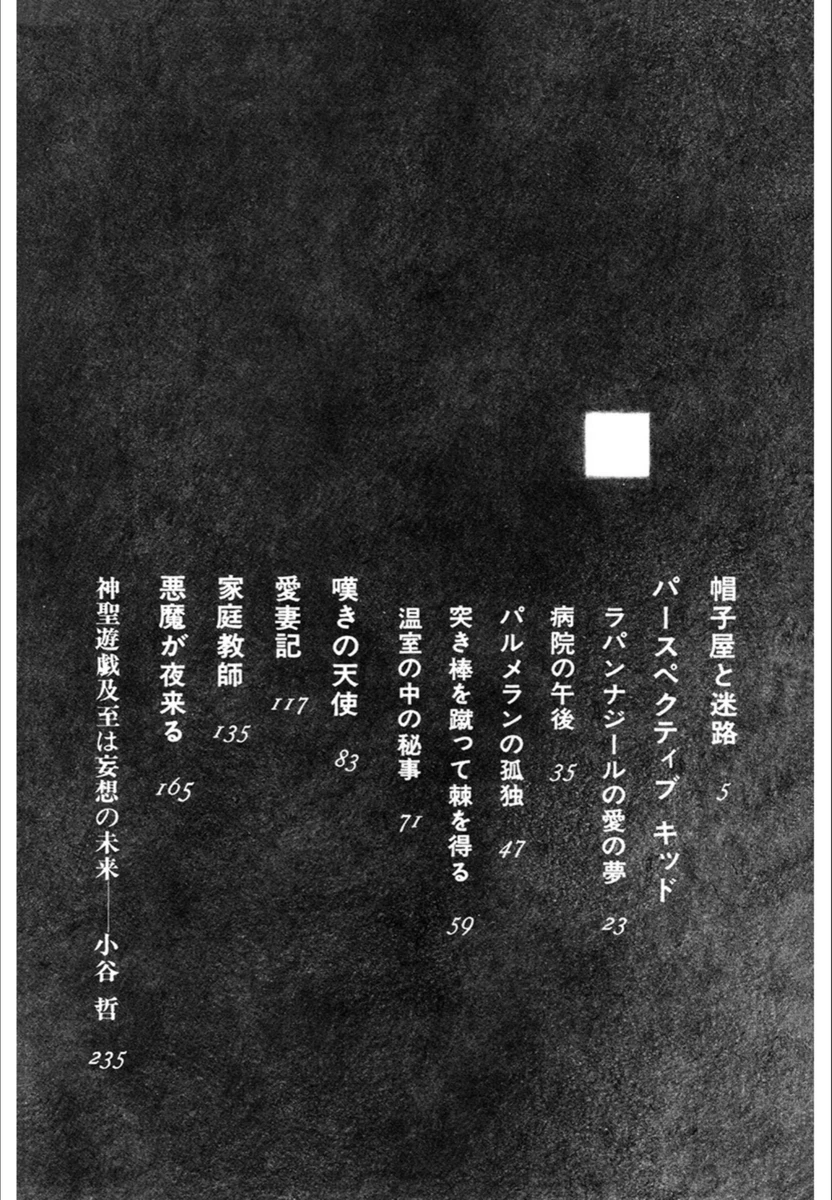 帽子屋と迷路 5
パースペクティブ キッド
ラパンナジールの愛の夢 23
病院の午後 35
パルメランの孤独 47
突き棒を蹴って棘を得る 59
温室の中の秘事 71
嘆きの天使 83
愛妻記 117
家庭教師 135
悪魔が夜来る 165
神聖遊戯及至は妄想の未来――小谷 哲 235